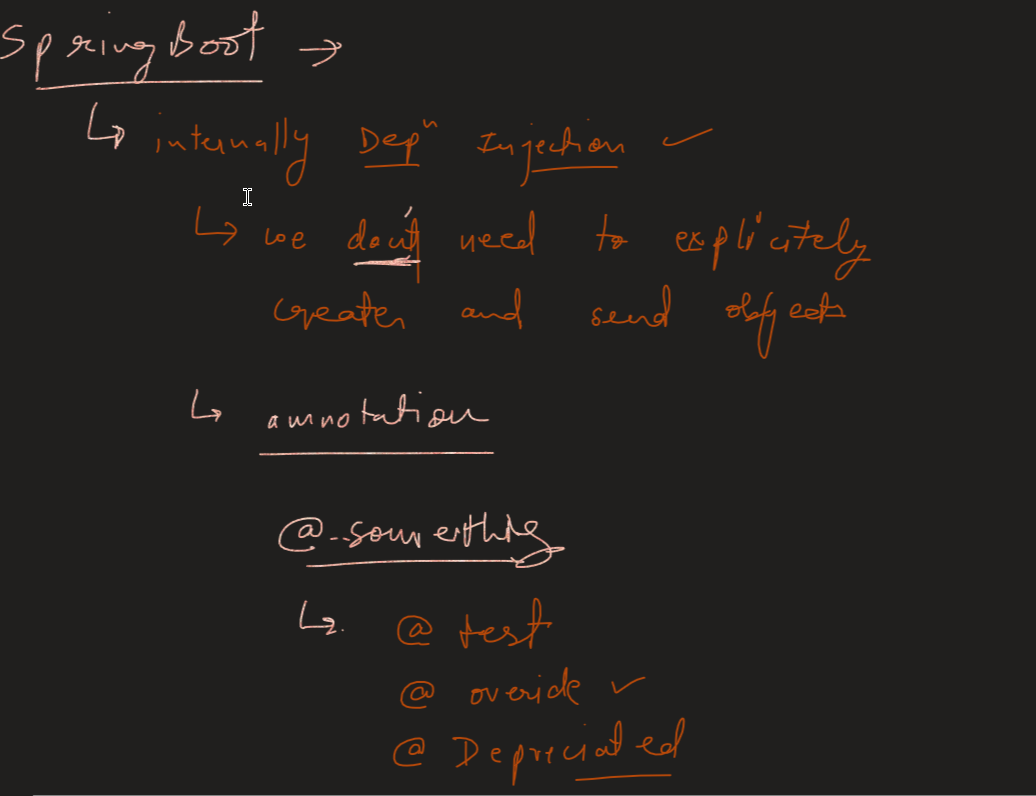 SpringBoot →
↳ internally Depⁿ Injection ✓
↳ we don't need to explicitely
creater and send objects
↳ annotation
@--somerthing
↳ @ test
@ overide ✓
@ Depreciated